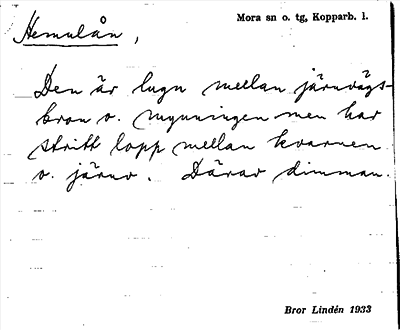 Mora sn o. tg, Kopparb. l.
Hemulån,
Den är lugn mellan järnvägs-
bron o. mynningen men har
stritt lopp mellan kvarnen
o. järnv. Därav dimman.
Bror Lindén 1933